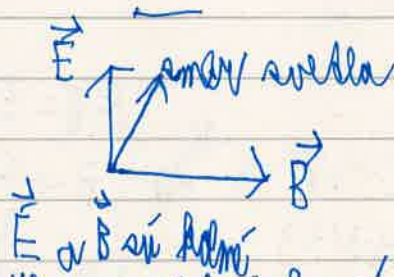 E⃗ smer svetla
B⃗
E⃗ a B⃗ sú kolmé